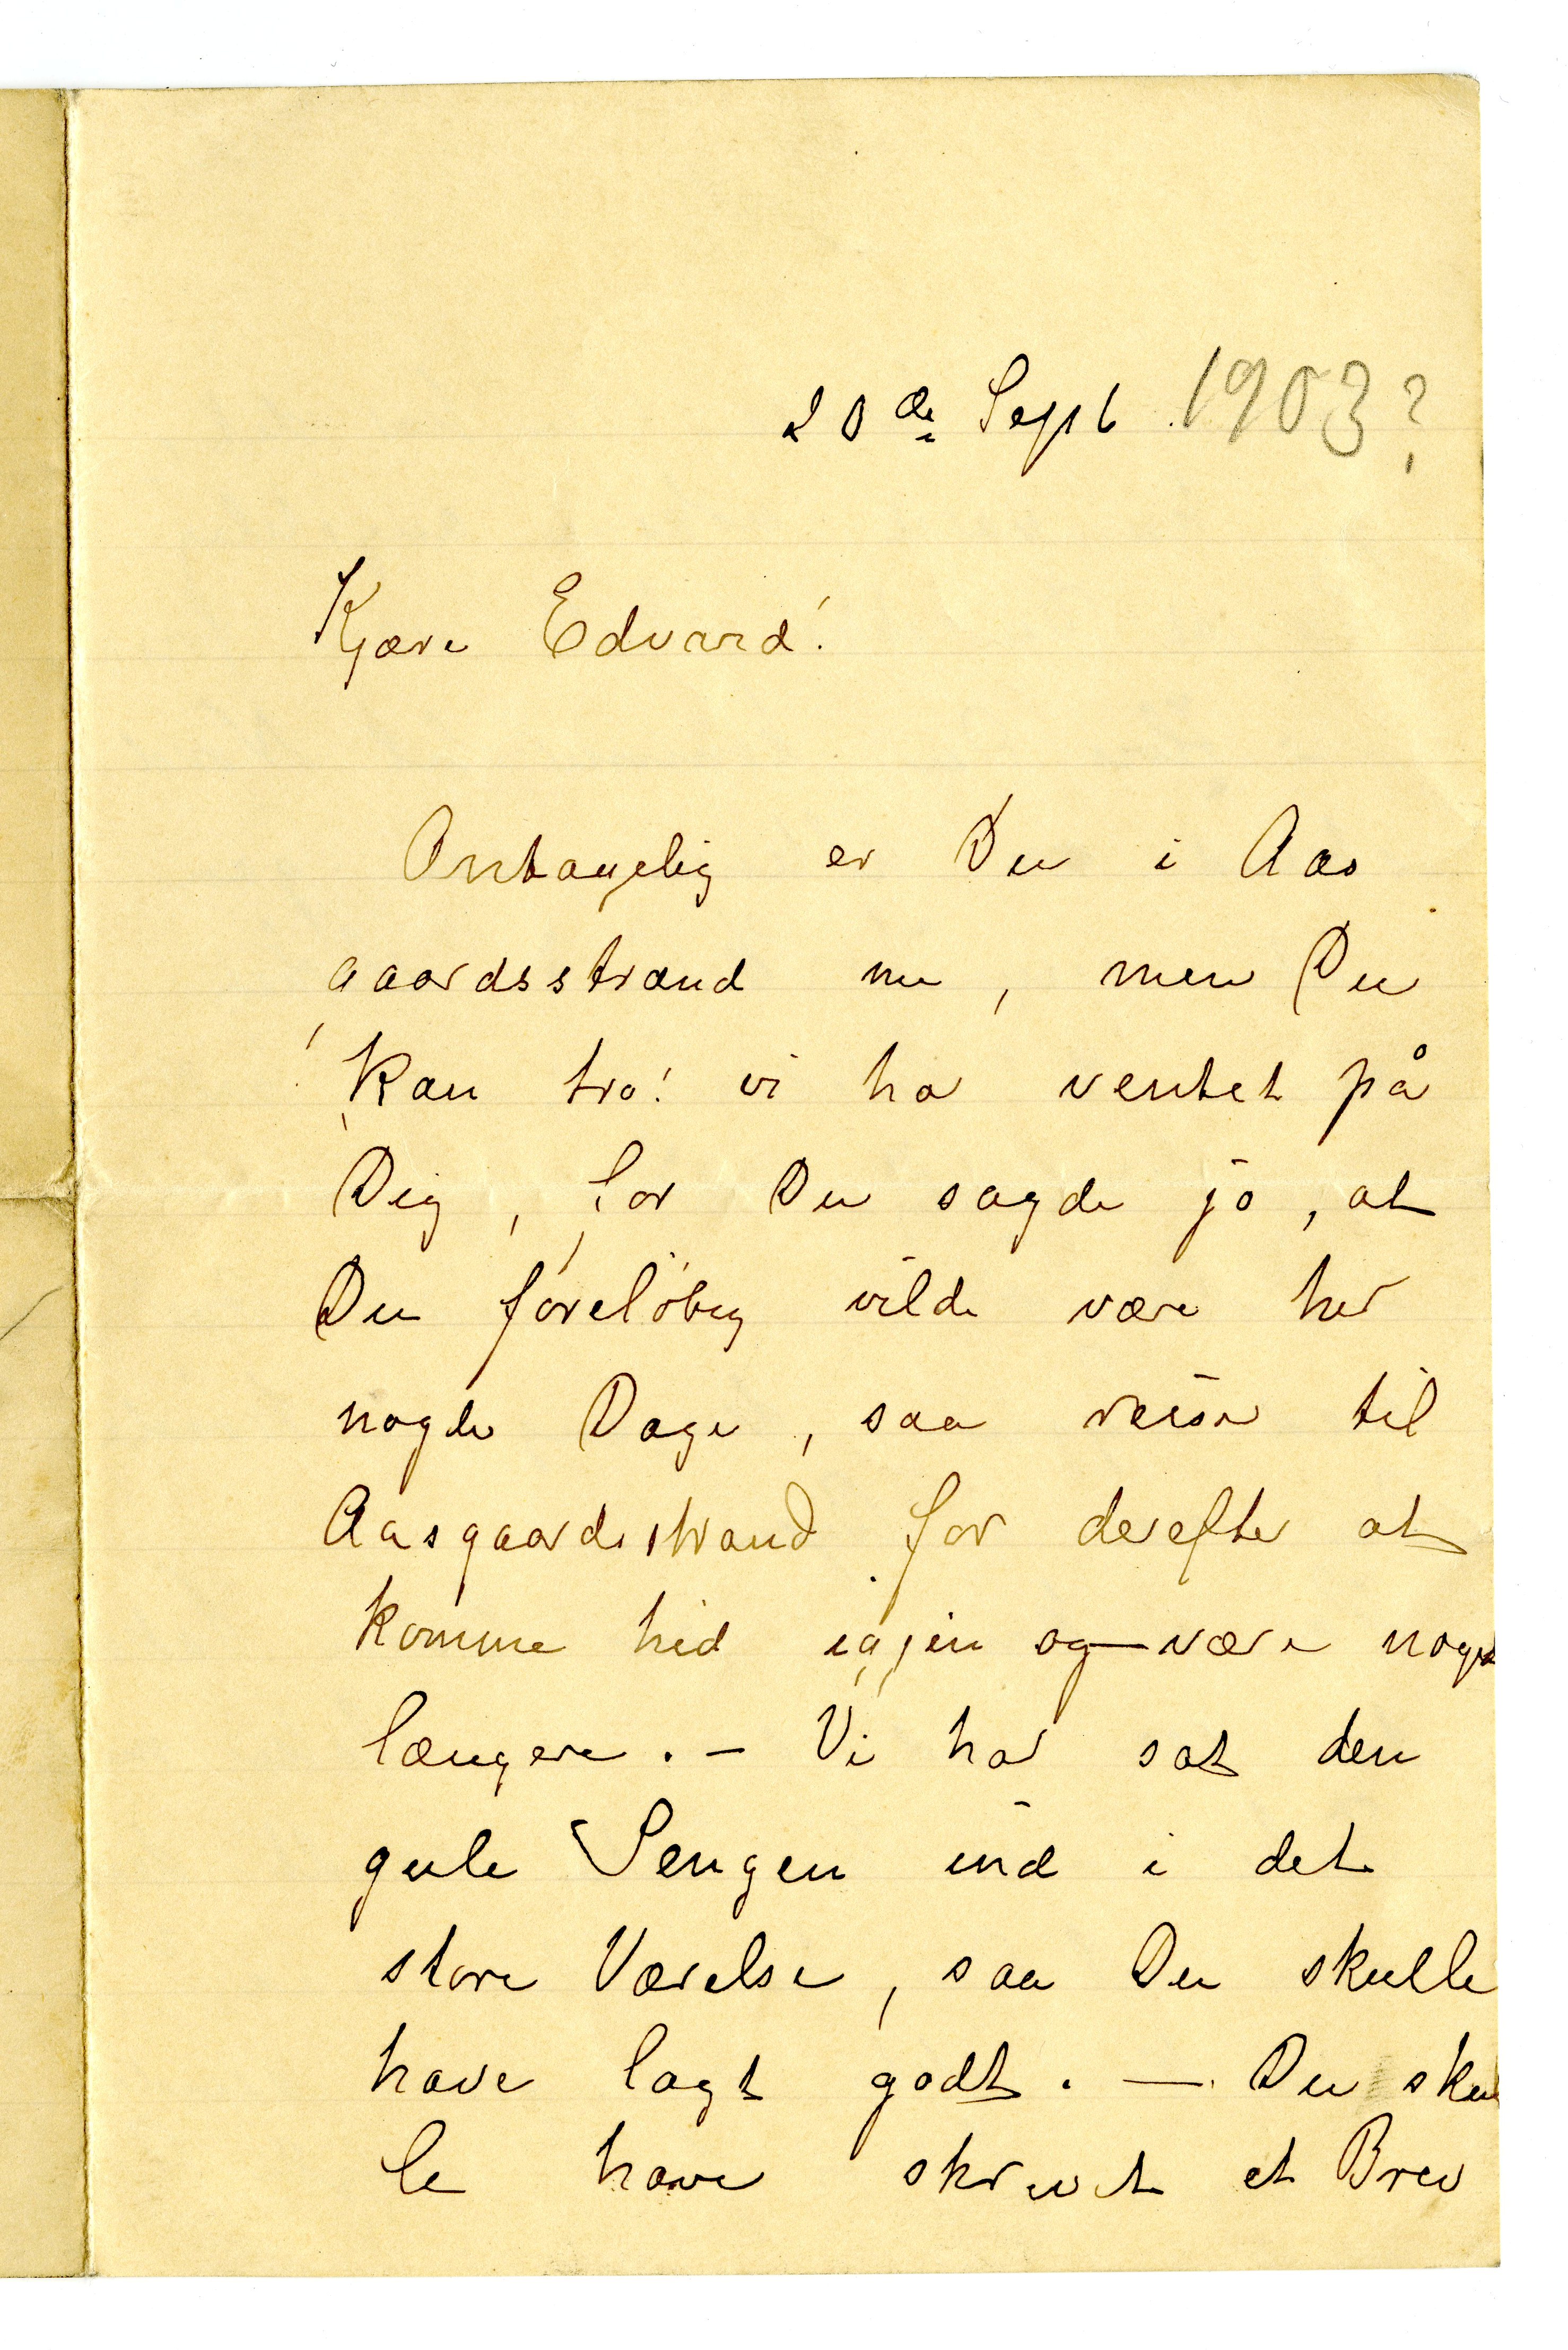 20de Sept 1903?
Kjære Edvard!
Antagelig er Du i Aas
gaardsstrand nu, men Du
kan tro! vi har ventet på
Dig, for Du sagde jo, at
Du foreløbig vilde være her
nogle Dage, saa reise til
Aasgaardsstrand for derefter at
komme hid igjen og være noget
længere. – Vi har sat den
gule Sengen ind i det
store Værelse, saa Du skulle
have lagt godt. — Du skul
le have skrevet et Brev